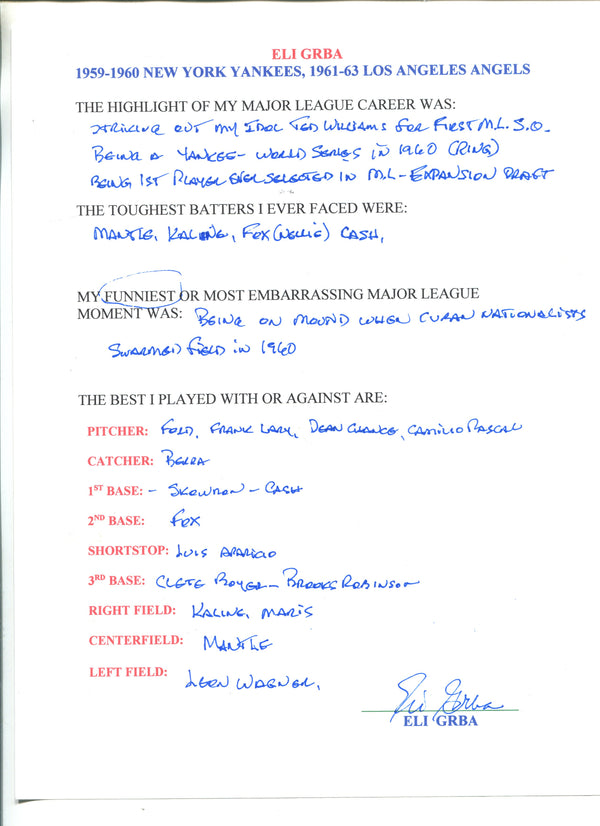 ELI GRBA
1959-1960 NEW YORK YANKEES, 1961-63 LOS ANGELES ANGELS
THE HIGHLIGHT OF MY MAJOR LEAGUE CAREER WAS:
STRIKING OUT MY IDOL TED WILLIAMS FOR FIRST M.L. S.O.
BEING A YANKEE - WORLD SERIES IN 1960 (RING)
BEING 1ST PLAYER EVER SELECTED IN M.L - EXPANSION DRAFT
THE TOUGHEST BATTERS I EVER FACED WERE:
MANTLE, KALINE, FOX (NELLIE) CASH,
MY FUNNIEST OR MOST EMBARRASSING MAJOR LEAGUE
MOMENT WAS: BEING ON MOUND WHEN CUBAN NATIONALISTS
SWARMED FIELD IN 1960
THE BEST I PLAYED WITH OR AGAINST ARE:
PITCHER: FORD, FRANK LARY, DEAN CHANCE, CAMILIO PASCAL
CATCHER: BERRA
1ST BASE: - SKOWRON - CASH
2ND BASE: FOX
SHORTSTOP: LUIS APARICIO
3RD BASE: CLETE BOYER - BROOKS ROBINSON
RIGHT FIELD: KALINE, MARIS
CENTERFIELD: MANTLE
LEFT FIELD: LEON WAGNER,
Eli Grba
ELI GRBA